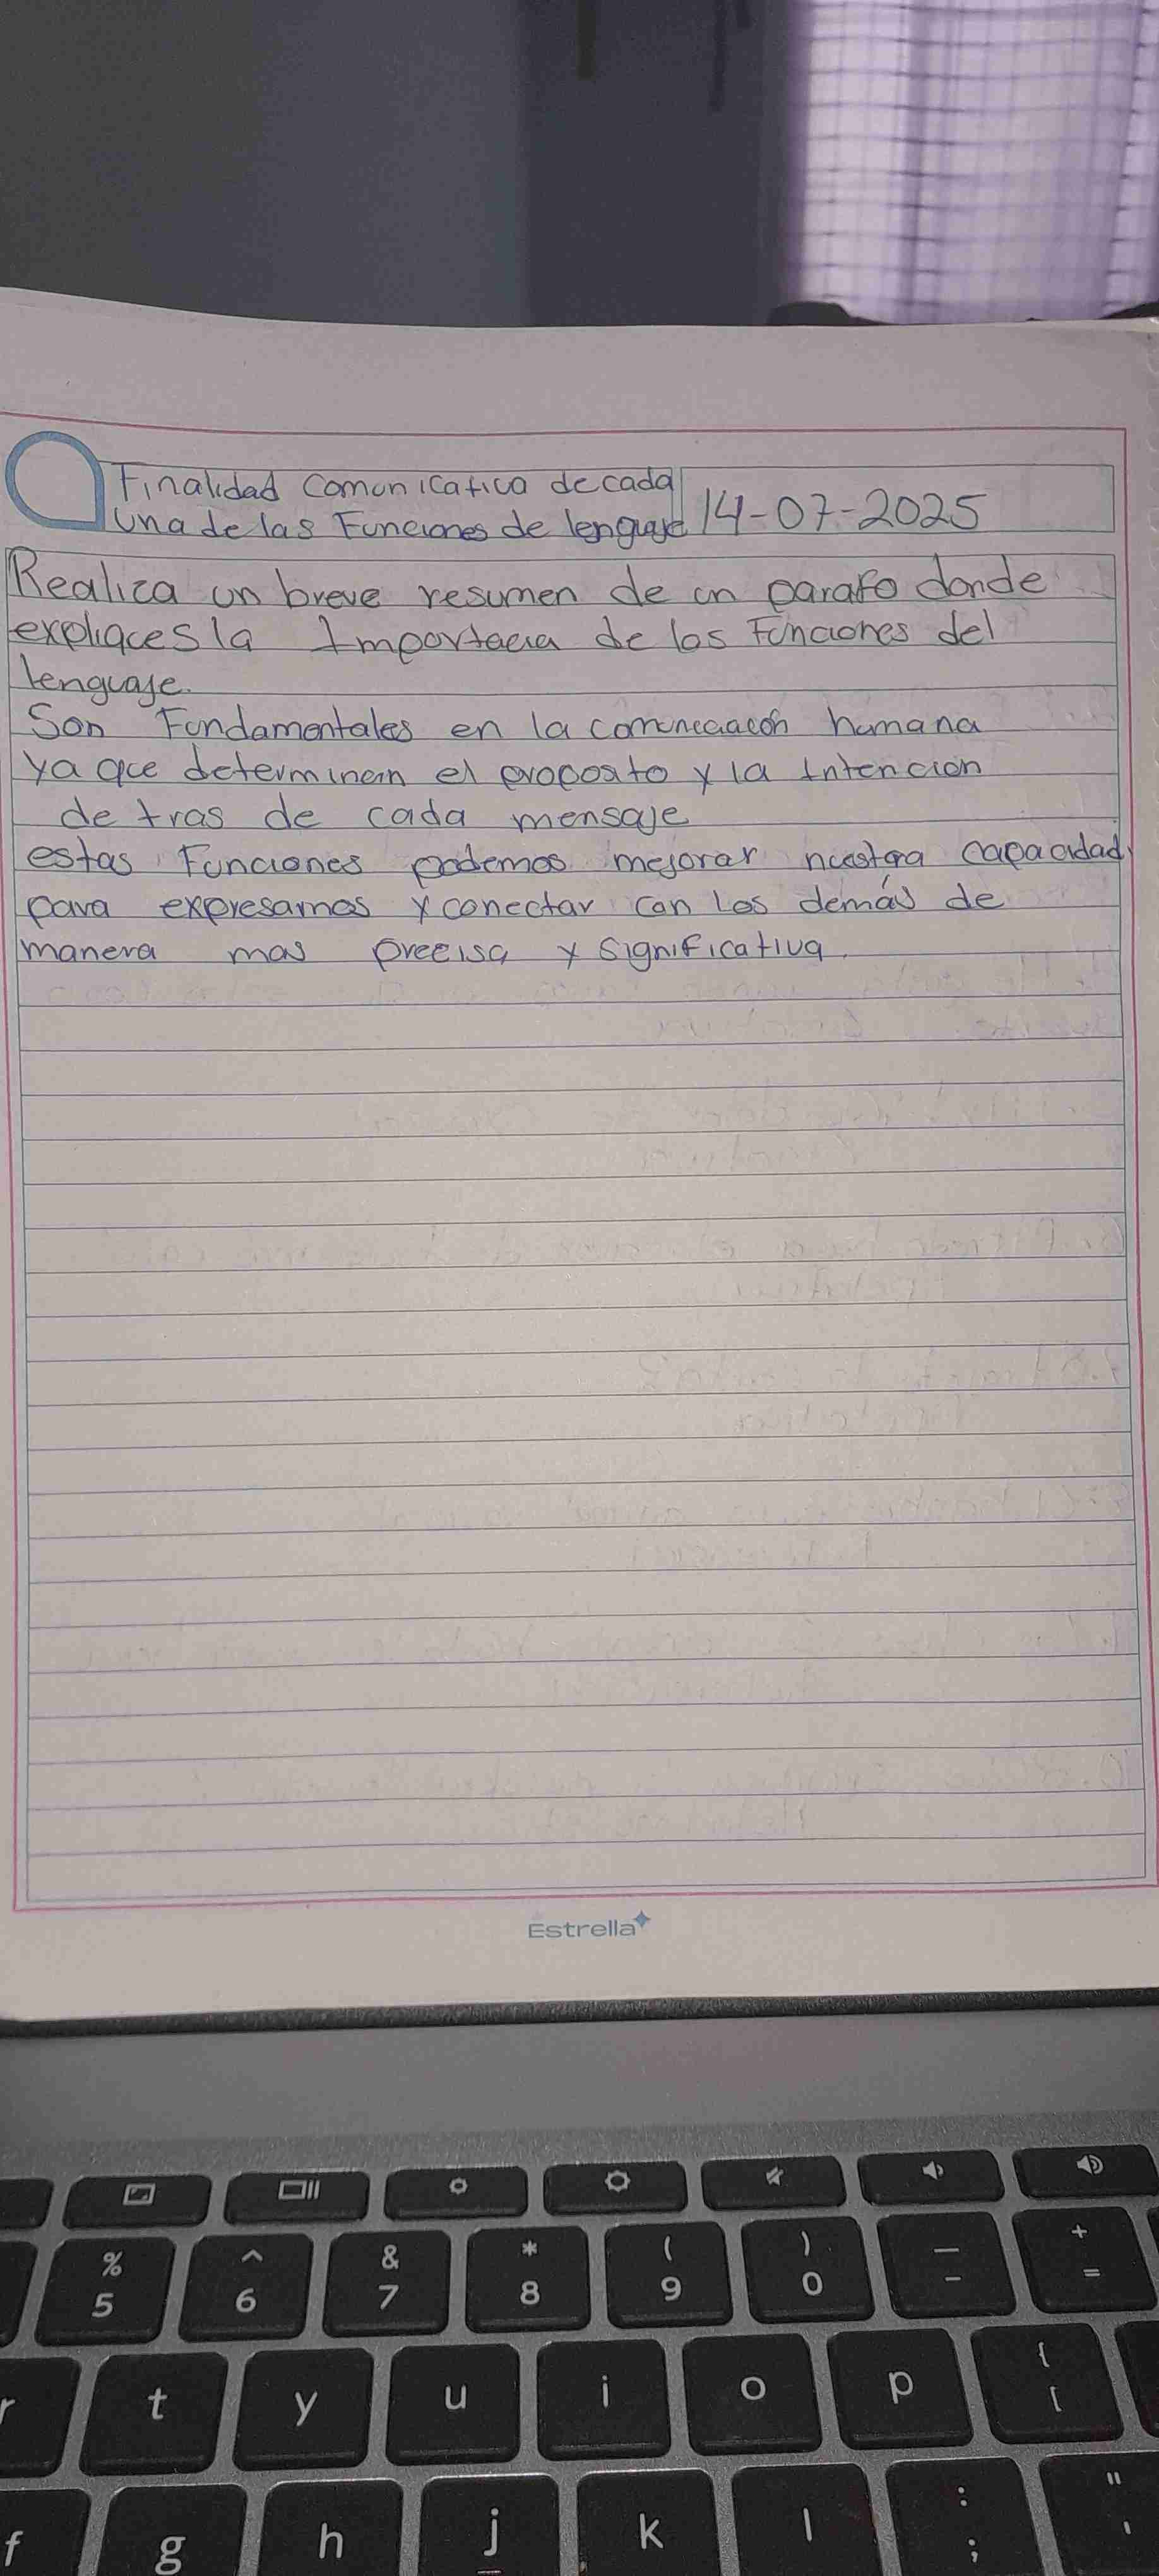 Finalidad comunicativa de cada
una de las Funciones de lenguaje 14-07-2025
Realiza un breve resumen de un parafo donde
expliques la Importacia de las Funciones del
lenguaje.
Son Fundamentales en la comunicacion humana
ya que determinan el proposito y la intencion
de tras de cada mensaje
estas Funciones podemos mejorar nuestra capacidad
para expresarnos y conectar con los demás de
manera mas precisa y significativa.
Estrella
% ^ & * ( ) — +
5 6 7 8 9 0 - =
r t y u i o p { [
f g h j k l : ; " '